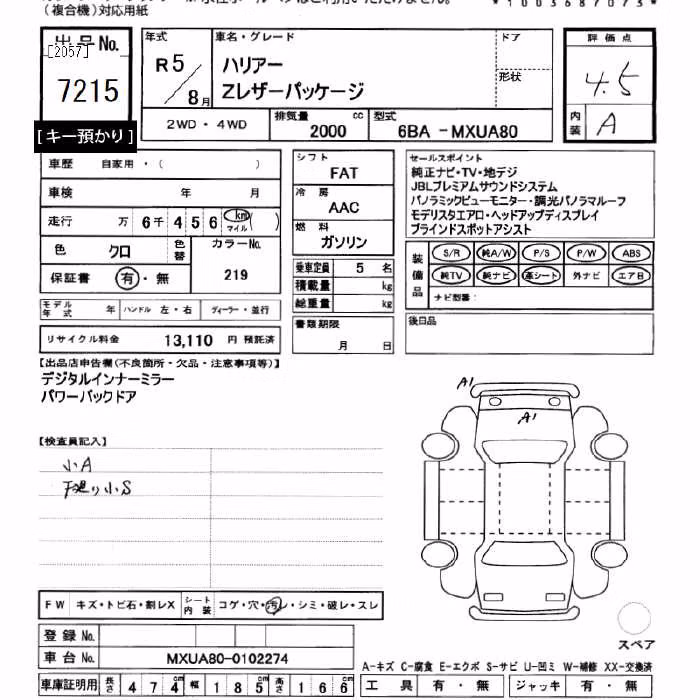 (複合機)対応用紙
出品No.
[2057]
7215
[キー預かり]
年式
R5/8月
車名・グレード
ハリアー
Zレザーパッケージ
ドア
形状
評価点
4.5
内装
A
2WD・4WD
排気量
2000 cc
型式
6BA -MXUA80
車歴 自家用・( )
車検 年 月
走行 万 6千 4 5 6 km マイル ( )
色 クロ
色替
カラーNo.
219
保証書 有・無
モデル年式 年
ハンドル 左・右
ディーラー・並行
リサイクル料金 13,110 円 預託済
シフト
FAT
冷房
AAC
燃料
ガソリン
乗車定員 5 名
積載量 kg
総重量 kg
書類期限
月 日
セールスポイント
純正ナビ・TV・地デジ
JBLプレミアムサウンドシステム
パノラミックビューモニター・調光パノラマルーフ
モデリスタエアロ・ヘッドアップディスプレイ
ブラインドスポットアシスト
装備品
S/R 純A/W P/S P/W ABS
純TV 純ナビ 革シート 外ナビ エアB
ナビ型番:
後日品
【出品店申告欄(不良箇所・欠品・注意事項等)】
デジタルインナーミラー
パワーバックドア
【検査員記入】
小A
下廻り小S
A1
A1
FW キズ・トビ石・割レX
シート内装 コゲ・穴・汚レ・シミ・破レ・スレ
登録No.
車台No. MXUA80-0102274
車庫証明用 長さ 474cm 幅 185cm 高さ 166cm
スペア
A-キズ C-腐食 E-エクボ S-サビ U-凹ミ W-補修 XX-交換済
工具 有・無
ジャッキ 有・無